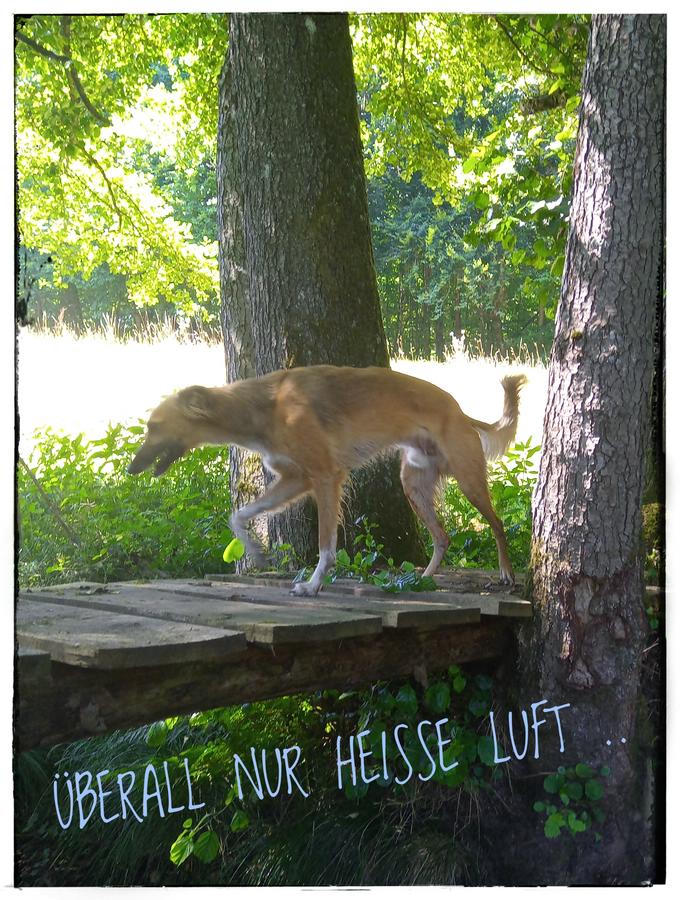 ÜBERALL NUR HEISSE LUFT ..